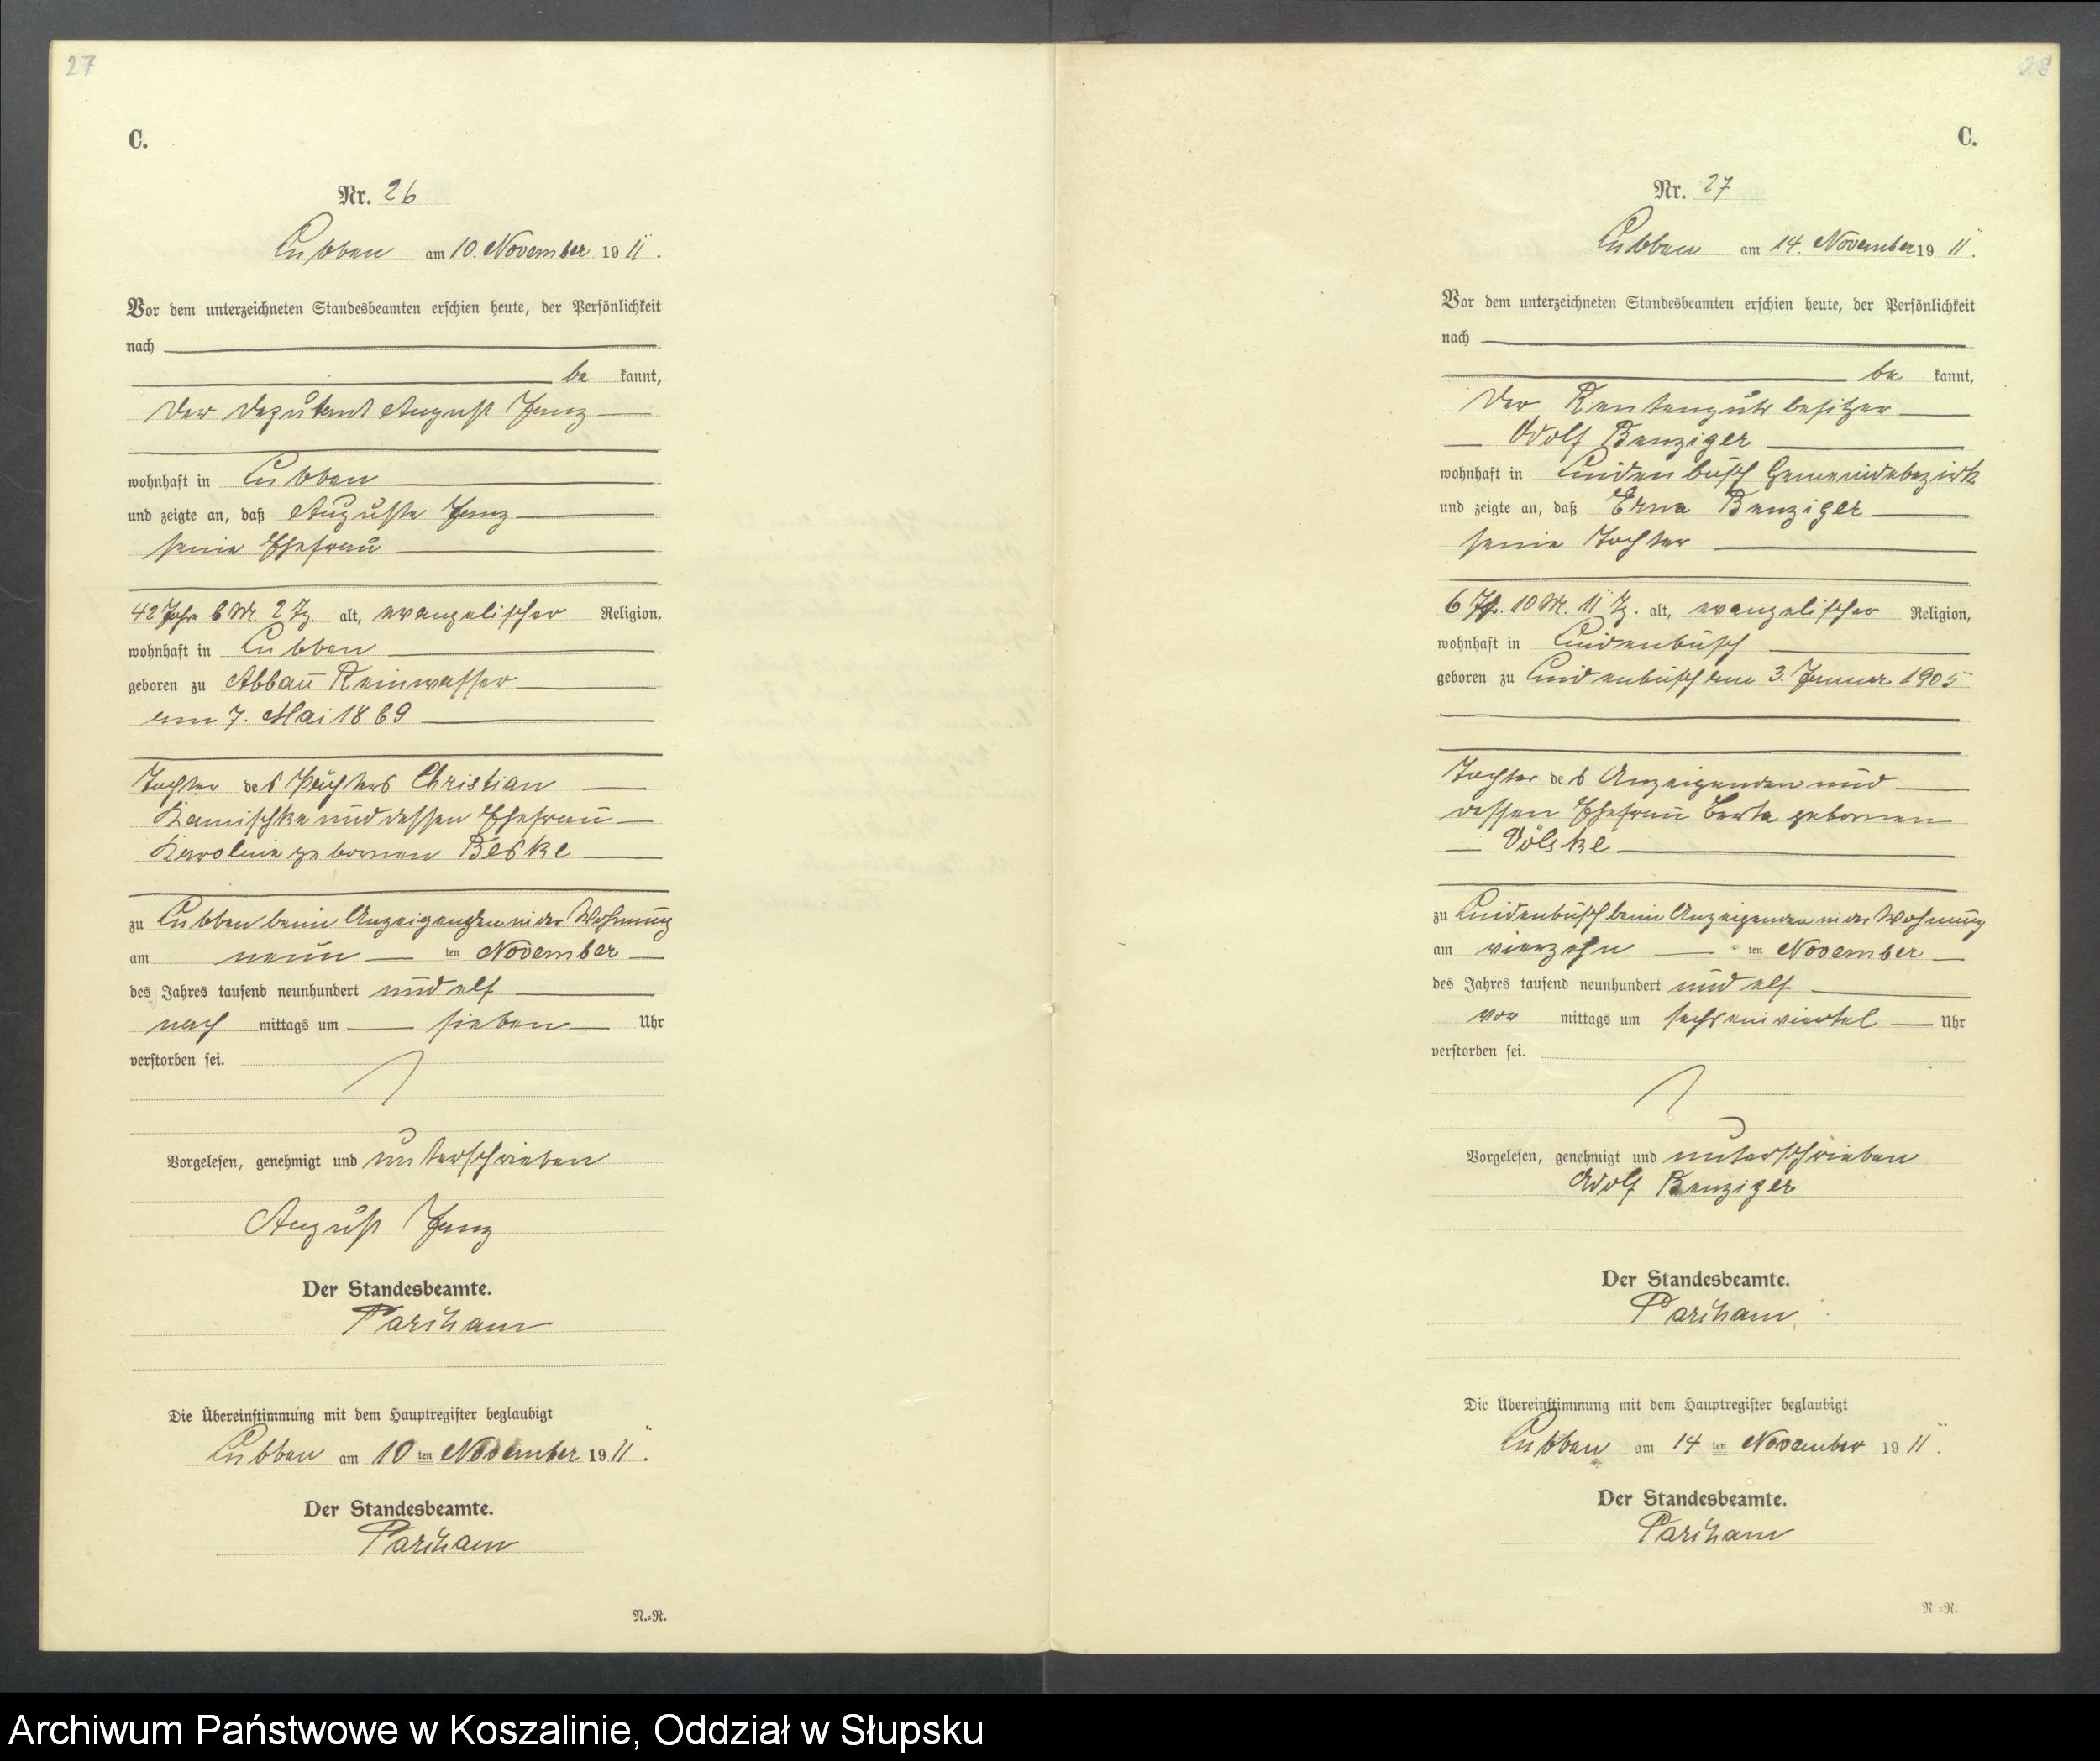 27
C.
Nr. 26
Lubben am 10. November 1911.
Vor dem unterzeichneten Standesbeamten erschien heute, der Persönlichkeit
nach
be kannt,
der Deputant August Janz
wohnhaft in Lubben
und zeigte an, daß Auguste Janz
seine Ehefrau
42 Jahre 6 M. 2 Tg. alt, evangelischer Religion,
wohnhaft in Lubben
geboren zu Abbau Reinwasser
am 7. Mai 1869
Tochter des Pächters Christian
Kamischke und dessen Ehefrau
Karoline gebornen Beske
zu Lubben beim Anzeigenden in der Wohnung
am neun ten November
des Jahres tausend neunhundert und elf
nach mittags um sieben Uhr
verstorben sei.
Vorgelesen, genehmigt und unterschrieben
August Janz
Der Standesbeamte.
Die Übereinstimmung mit dem Hauptregister beglaubigt
Lubben am 10 ten November 1911.
Der Standesbeamte.
N.=R.
28
C.
Nr. 27
Lubben am 14. November 1911.
Vor dem unterzeichneten Standesbeamten erschien heute, der Persönlichkeit
nach
be kannt,
der Rentengutsbesitzer
Adolf Benziger
wohnhaft in Lindenbusch Gemeindebezirk
und zeigte an, daß Erna Benziger
seine Tochter
6 Jh. 10 M. 11 Tg. alt, evangelischer Religion,
wohnhaft in Lindenbusch
geboren zu Lindenbusch am 3. Januar 1905
Tochter des Anzeigenden und
dessen Ehefrau Berta gebornen
Völske
zu Lindenbusch beim Anzeigenden in der Wohnung
am vierzehn ten November
des Jahres tausend neunhundert und elf
vor mittags um sechseinviertel Uhr
verstorben sei.
Vorgelesen, genehmigt und unterschrieben
Adolf Benziger
Der Standesbeamte.
Die Übereinstimmung mit dem Hauptregister beglaubigt
Lubben am 14 ten November 1911.
Der Standesbeamte.
N.=R.
Archiwum Państwowe w Koszalinie, Oddział w Słupsku